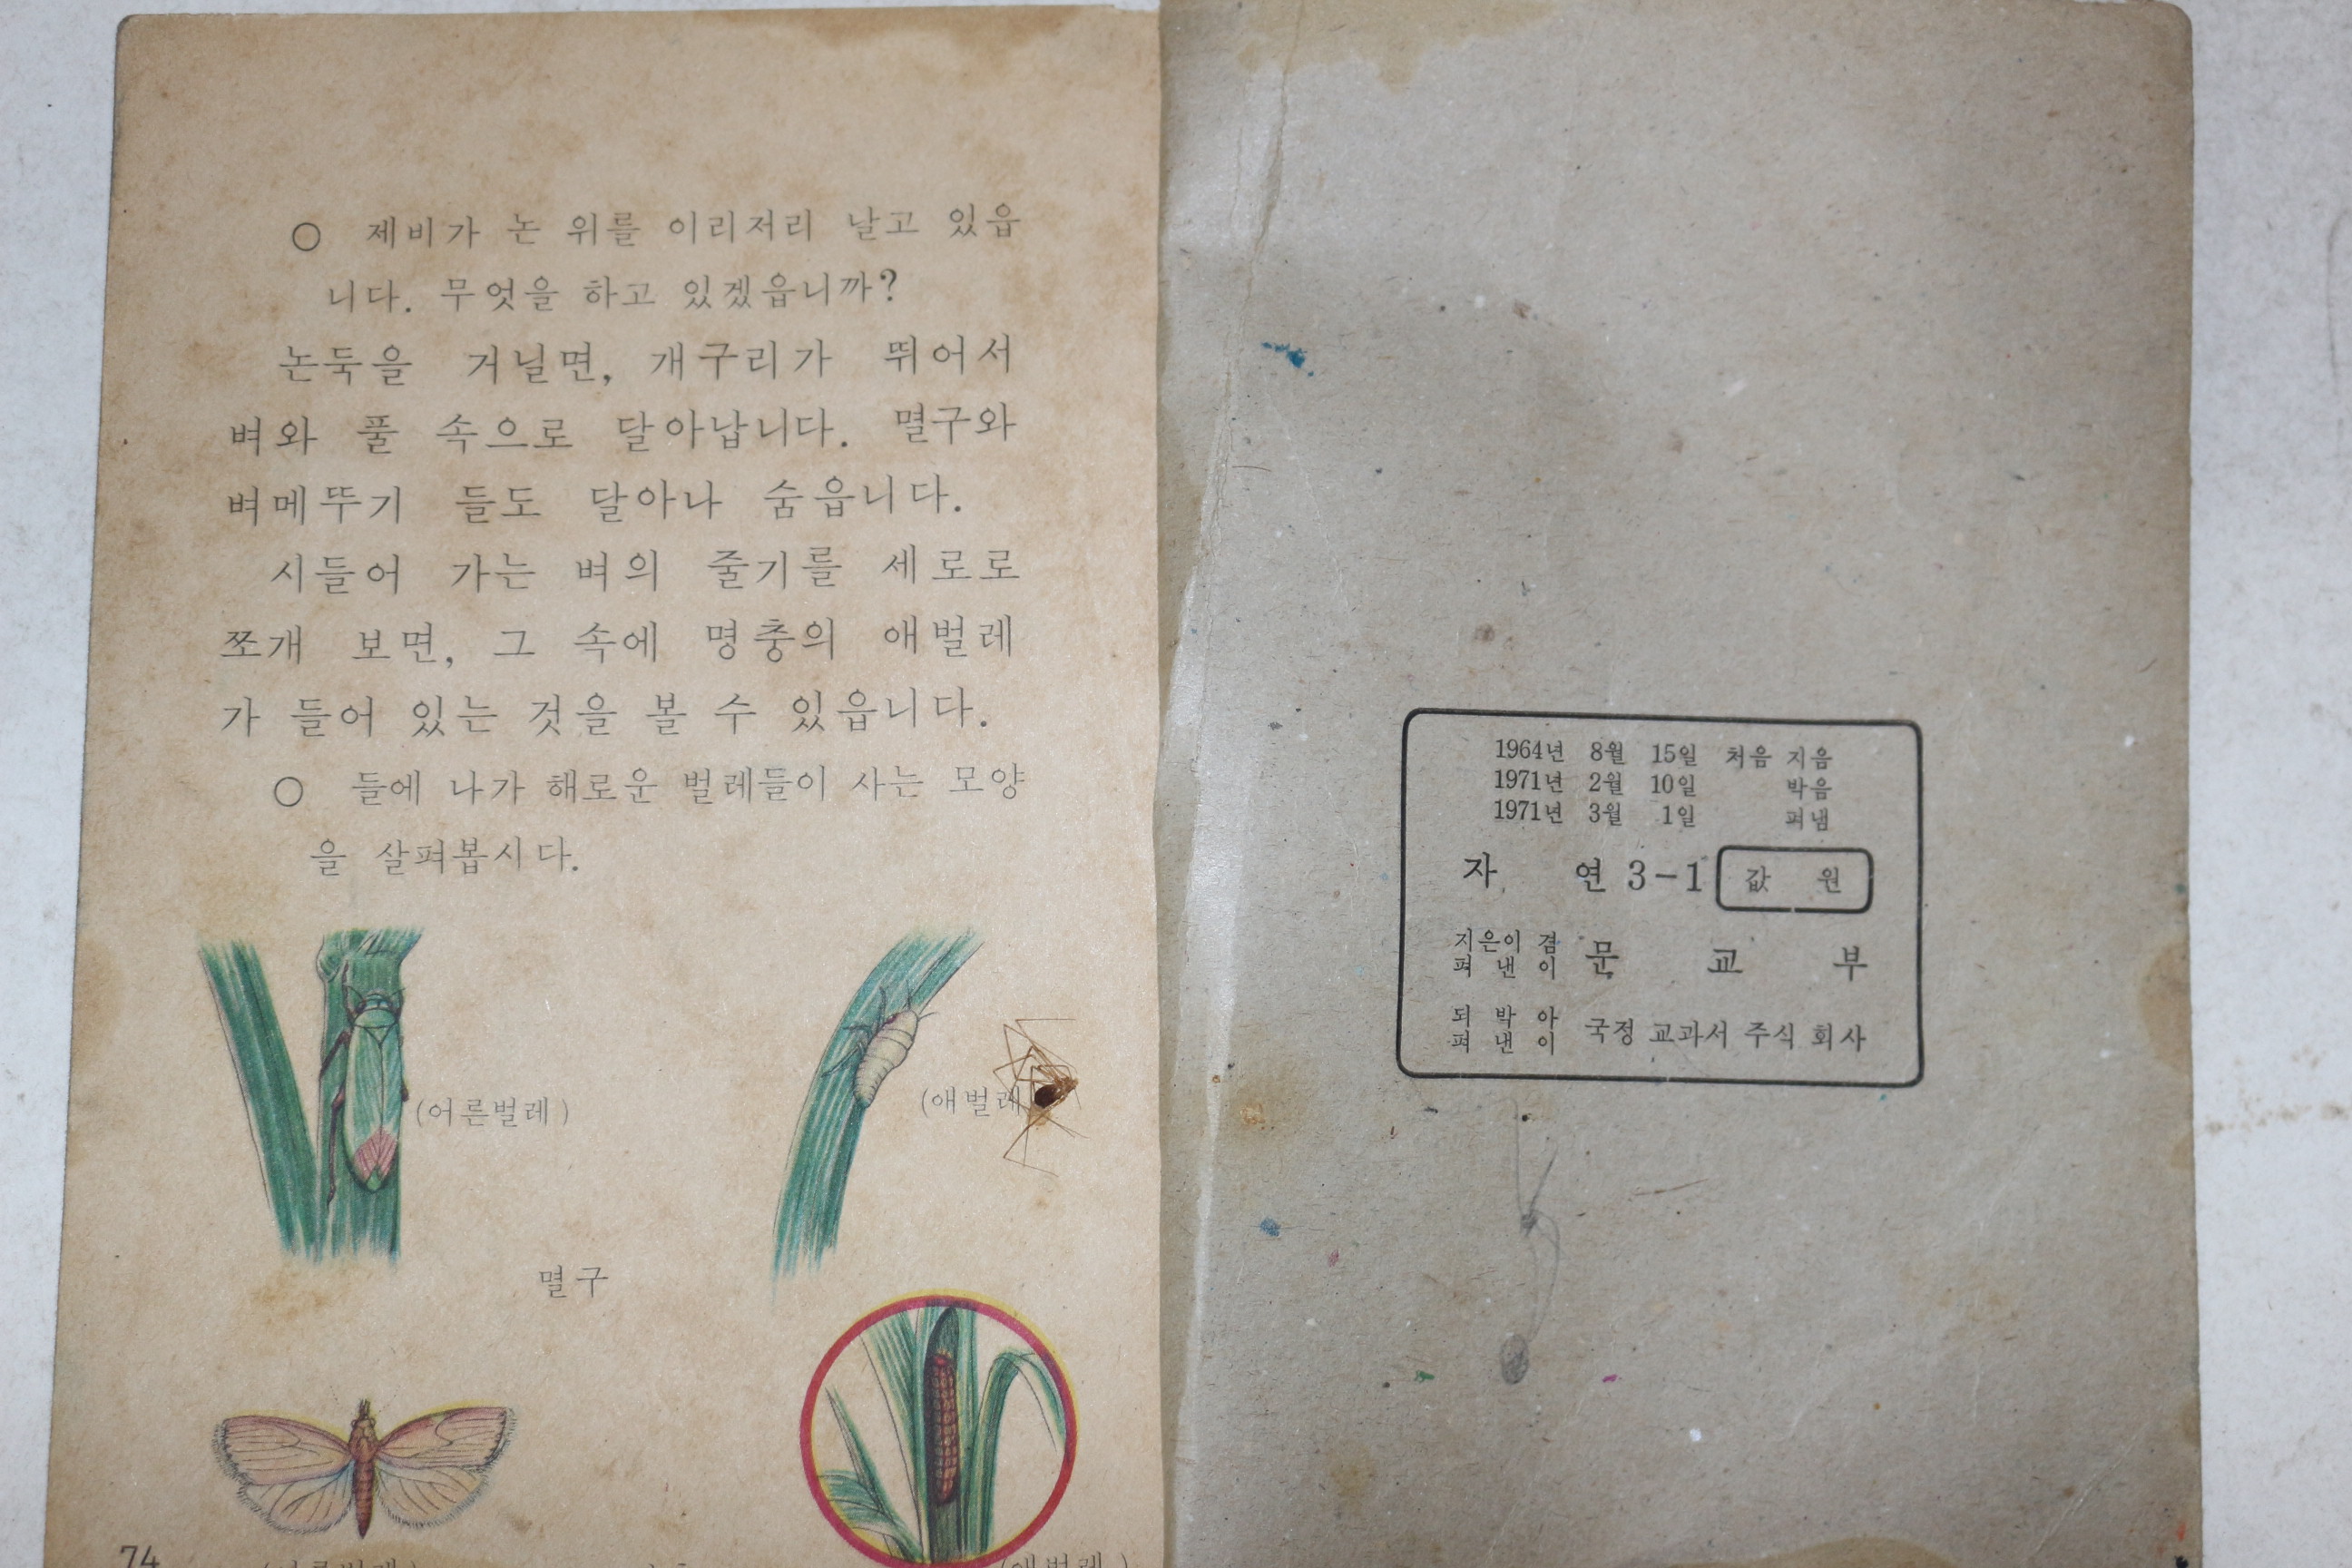 ○ 제비가 논 위를 이리저리 날고 있읍
니다. 무엇을 하고 있겠읍니까?
논둑을 거닐면, 개구리가 뛰어서
벼와 풀 속으로 달아납니다. 멸구와
벼메뚜기 들도 달아나 숨읍니다.
시들어 가는 벼의 줄기를 세로로
쪼개 보면, 그 속에 명충의 애벌레
가 들어 있는 것을 볼 수 있읍니다.
○ 들에 나가 해로운 벌레들이 사는 모양
을 살펴봅시다.
(어른벌레)
(애벌레
멸구
74
(애벌레)
1964년 8월 15일 처음 지음
1971년 2월 10일 박음
1971년 3월 1일 펴냄
자 연 3-1 값 원
지은이 겸
펴 낸 이
문 교 부
되 박 아
펴 낸 이
국정 교과서 주식 회사